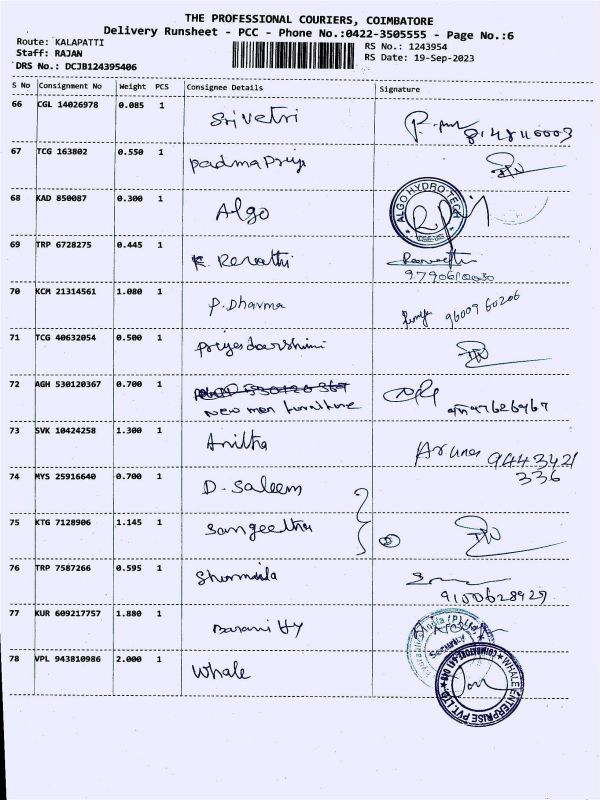 THE PROFESSIONAL COURIERS, COIMBATORE
Delivery Runsheet - PCC - Phone No.:0422-3505555 - Page No.:6
Route: KALAPATTI
RS No.: 1243954
Staff: RAJAN
RS Date: 19-Sep-2023
DRS No.: DCJB124395406
S No Consignment No Weight PCS Consignee Details Signature
66 CGL 14026978 0.085 1 Srivetri
67 TCG 163802 0.550 1 Padma Priya
68 KAD 850087 0.300 1 Algo ALGO HYDRO TECH
69 TRP 6728275 0.445 1 K. Revathi
70 KCM 21314561 1.080 1 P. Dharma 9600960206
71 TCG 40632054 0.500 1 Priyadarshini
72 AGH 530120367 0.700 1
New men furniture
73 SVK 10424258 1.300 1 Anitha
9443421
336
74 MYS 25916640 0.700 1 D. Saleem
75 KTG 7128906 1.145 1 Sangeetha
76 TRP 7587266 0.595 1 Sharmila
9100628929
77 KUR 609217757 1.880 1 Barani Hy
78 VPL 943810986 2.000 1 Whale WHALE ENTERPRISE PVT. LTD.